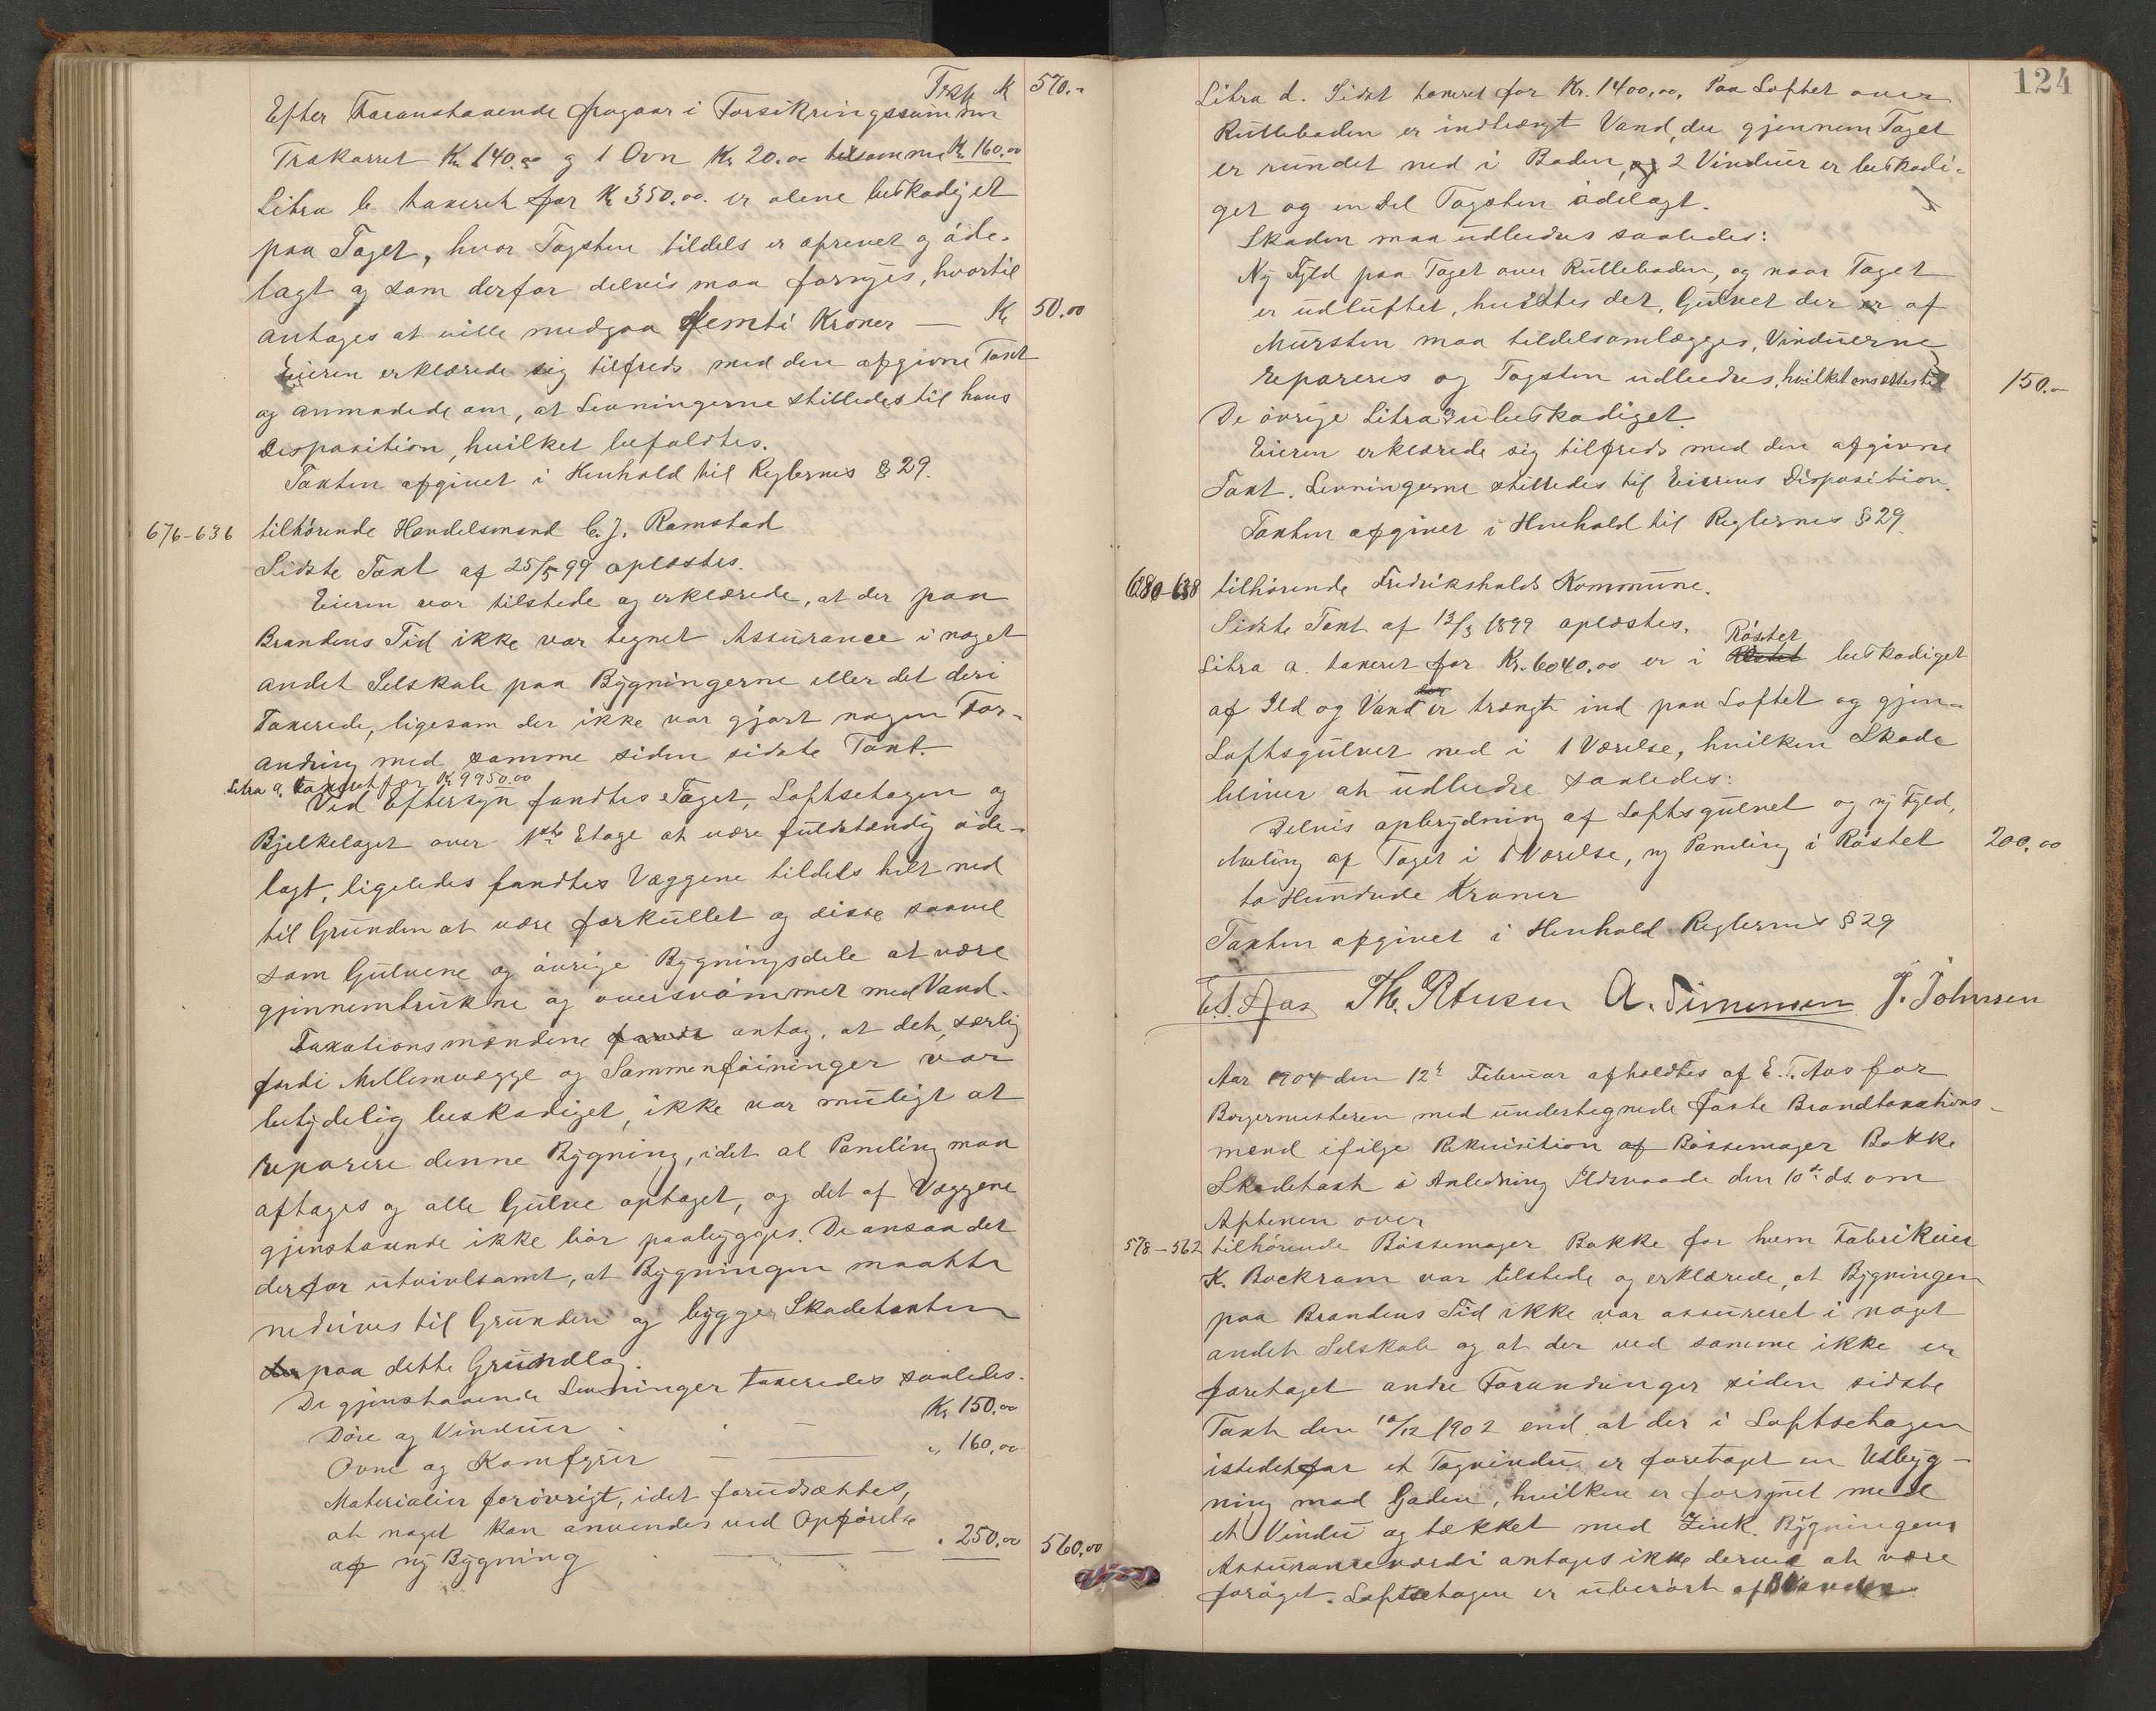 Trsp. Kr 570.-
Efter Foranstaaende fragaar i Forsikringssummen
Trækarret Kr. 140.00 og 1 Ovn Kr. 20.00 tilsammen Kr. 160.00
Litra b. taxeret for Kr. 350.00. er alene beskadiget
paa Taget, hvor Tagsten tildels er oprevet og öde-
lagt og som derfor delvis maa fornyes, hvortil
antages at ville medgaa femti Kroner — Kr 50.00
Eieren erklærede sig tilfreds med den afgivne Taxt
og anmodede om, at Levningerne stilledes til hans
Disposition, hvilket befoldtes.
Taxten afgivet i Henhold til Reglernes § 29.
676-636 tilhörende Handelsmand C. J. Ramstad
Sidste Taxt af 25/5 99 oplæstes.
Eieren var tilstede og erklærede, at der paa
Brandens Tid ikke var tegnet Assurance i noget
andet Selskab paa Bygningerne eller det deri
Taxerede, ligesom der ikke var gjort nogen For-
andring med samme siden sidste Taxt.
Litra a. taxeret for Kr 9950.00
Ved Eftersyn fandtes Taget, Loftsetagen og
Bjelkelaget over 1ste Etage at være fuldstændig öde-
lagt, ligeledes fandtes Væggene tildels helt ned
til Grunden at være forkullet og disse saavel
som Gulvene og övrige Bygningsdele at være
gjennemtrukne og oversvömmet med Vand.
Taxationsmændene antog, at det, særlig
fordi Mellemvægge og Sammenföininger var
betydelig beskadiget, ikke var muligt at
reparere denne Bygning, idet al Paneling maa
aftages og alle Gulve optaget, og det af Væggene
gjenstaaende ikke bör paabygges. De ansaa det
derfor utvivlsomt, at Bygningen maatte
nedrives til Grunden og bygger Skadetaxten
paa dette Grundlag.
De gjenstaaende Levninger taxeredes saaledes.
Döre og Vinduer — Kr 150.00
Ovne og Komfyrer — " 160.00
Materialier forövrigt, idet forudsættes,
at noget kan anvendes ved Opförelse
af ny Bygning — " 250.00 560.00
124
Litra d. Sidst taxeret for Kr. 1400.00. Paa Loftet over
Rullebaden er indtrængt Vand, der gjennem Taget
er rundet ned i Boden, og 2 Vinduer er beskadi-
get og en Del Tagsten ödelagt.
Skaden maa udbedres saaledes:
Ny Fyld paa Taget over Rulleboden, og naar Taget
er udluftet, hvidtes det, Gulvet der er af
Mursten maa tildels omlægges, Vinduerne
repareres og Tagsten udbedres, hvilket ansættes til 150.-
De övrige Litra ubeskadiget.
Eieren erklærede sig tilfreds med den afgivne
Taxt. Levningerne stilledes til Eierens Disposition.
Taxten afgivet i Henhold til Reglernes § 29.
680-638 tilhörende Fredrikshalds Kommune.
Sidste Taxt af 13/3 1899 oplæstes.
Röstet
Litra a. taxeret for Kr. 6040.00 er i beskadiget
af Ild og Vand er trængt ind paa Loftet og gjen-
Loftsgulvet ned i 1 Værelse, hvilken Skade
bliver at udbedre saaledes:
Delvis opbrydning af Loftsgulvet og ny Fyld,
Maling af Taget i 1 Værelse, ny Paneling i Röstet 200.00
to Hundrede Kroner
Taxten afgivet i Henhold Reglernes § 29
E. T. Aas Th. Petersen A. Simensen J. Johnsen
Aar 1904 den 12te Februar afholdtes af E. T. Aas for
Borgermesteren med undertegnede faste Brandtaxations-
mænd ifölge Rekvisition af Bössemager Bakke
Skadetaxt i Anledning Ildsvaade den 10de ds. om
Aftenen over
578-562 tilhörende Bössemager Bakke for hvem Fabrikeier
K. Bockram var tilstede og erklærede, at Bygningen
paa Brandens Tid ikke var assureret i noget
andet Selskab og at der ved samme ikke er
foretaget andre Forandringer siden sidste
Taxt den 10/12 1902 end, at der i Loftsetagen
istedetfor et Tagvindu er foretaget en Udbyg-
ning mod Gaden, hvilken er forsynet med
et Vindu og tækket med Zink. Bygningens
Assuranceværdi antages ikke derved at være
foröget. Loftsetagen er uberört af Branden